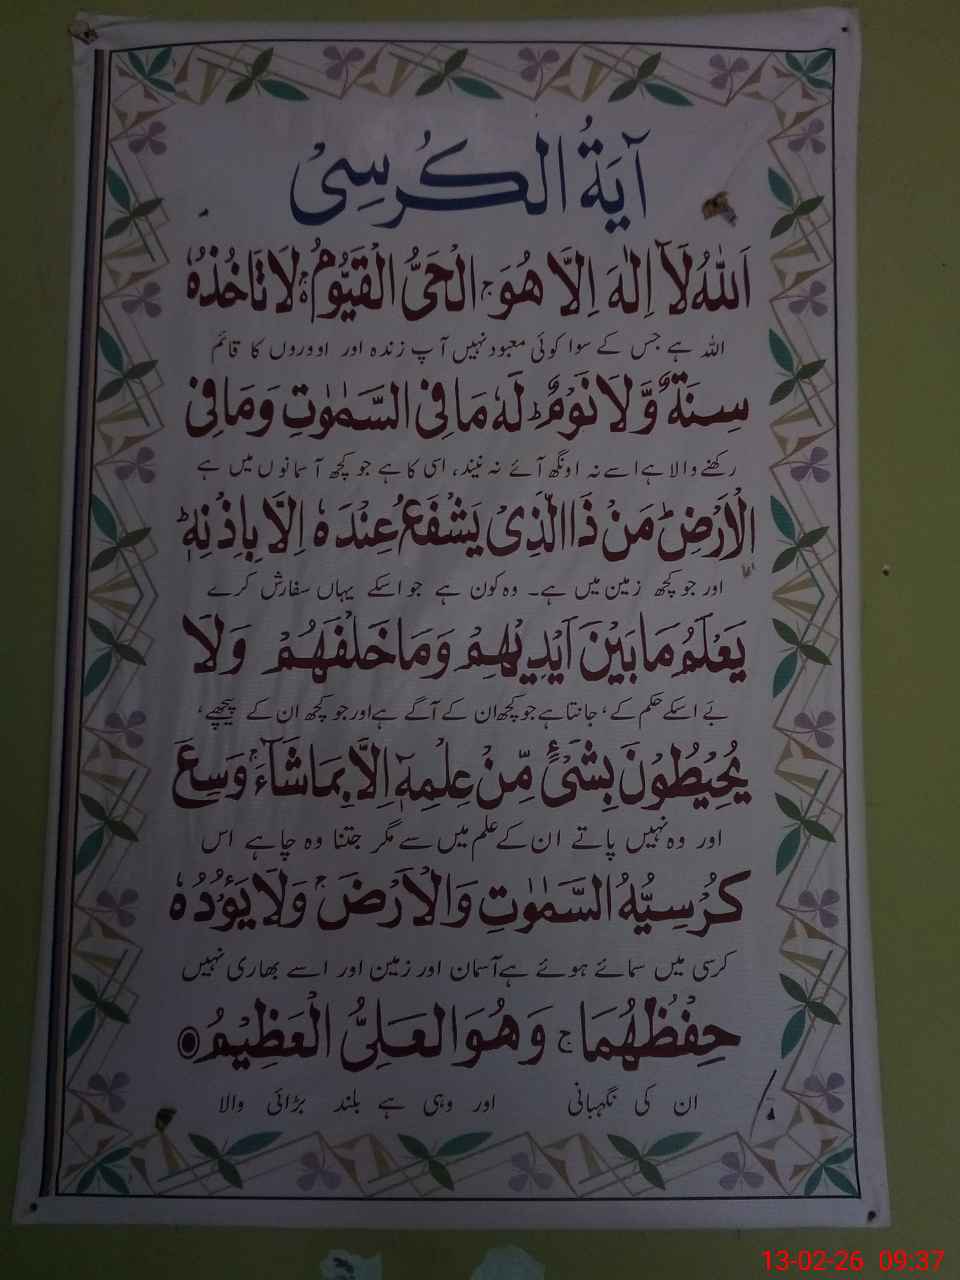 آيَةُ الكُرسِیْ
اَللّٰهُ لَآ اِلٰهَ اِلَّا هُوَ ۚ اَلْحَىُّ الْقَيُّوْمُ ۚ لَا تَاْخُذُهٗ
اللہ ہے جس کے سوا کوئی معبود نہیں آپ زندہ اور اوروں کا قائم
سِنَةٌ وَّلَا نَوْمٌ ؕ لَهٗ مَا فِى السَّمٰوٰتِ وَمَا فِى
رکھنے والا ہے اسے نہ اونگھ آئے نہ نیند، اسی کا ہے جو کچھ آسمانوں میں ہے
الْاَرْضِ ؕ مَنْ ذَا الَّذِىْ يَشْفَعُ عِنْدَهٗ اِلَّا بِاِذْنِهٖ ؕ
اور جو کچھ زمین میں ہے۔ وہ کون ہے جو اسکے یہاں سفارش کرے
يَعْلَمُ مَا بَيْنَ اَيْدِيْهِمْ وَمَا خَلْفَهُمْ وَلَا
بے اسکے حکم کے، جانتا ہے جو کچھ ان کے آگے ہے اور جو کچھ ان کے پیچھے،
يُحِيْطُوْنَ بِشَىْءٍ مِّنْ عِلْمِهٖٓ اِلَّا بِمَا شَآءَ ۚ وَسِعَ
اور وہ نہیں پاتے ان کے علم میں سے مگر جتنا وہ چاہے اس
كُرْسِيُّهُ السَّمٰوٰتِ وَالْاَرْضَ ۚ وَلَا يَـُٔوْدُهٗ
کرسی میں سمائے ہوئے ہے آسمان اور زمین اور اسے بھاری نہیں
حِفْظُهُمَا ۚ وَهُوَ الْعَلِىُّ الْعَظِيْمُ
ان کی نگہبانی اور وہی ہے بلند بڑائی والا
13-02-26 09:37